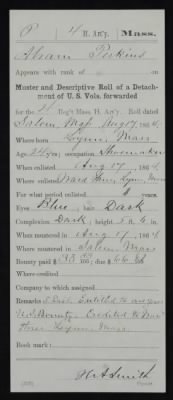 P 4 H. Art'y. Mass.
Abram Perkins
Appears with rank of
Muster and Descriptive Roll of a Detachment of U. S. Vols. forwarded
for the 4 Reg't Mass. H. Art'y. Roll dated
Salem, Mass Aug 17, 1864.
Where born Lynn, Mass
Age 24 y'rs; occupation Shoemaker
When enlisted Aug 17, 1864.
Where enlisted Lynn, Mass
For what period enlisted years.
Eyes Blue; hair Dark
Complexion Dark; height 5 ft. 6 in.
When mustered in Aug 17, 1864.
Where mustered in Salem, Mass
Bounty paid $33 00/100; due $66 /100
Where credited
Company to which assigned
Remarks: Entitled to
U.S. Bounty. Credited to
Lynn Mass.
Book mark:
Smith
Copyist.